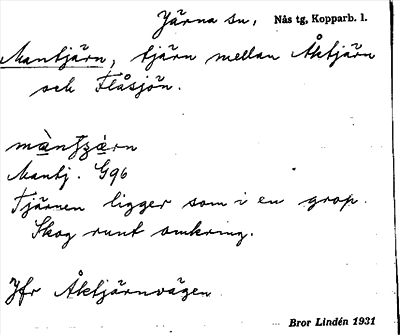 Järna sn, Nås tg, Kopparb. l.
Mantjärn, tjärn mellan Åktjärn
och Flåsjön.
Mantj. G96
Tjärnen ligger som i en grop.
Skog runt omkring.
Jfr Åktjärnvägen
Bror Lindén 1931